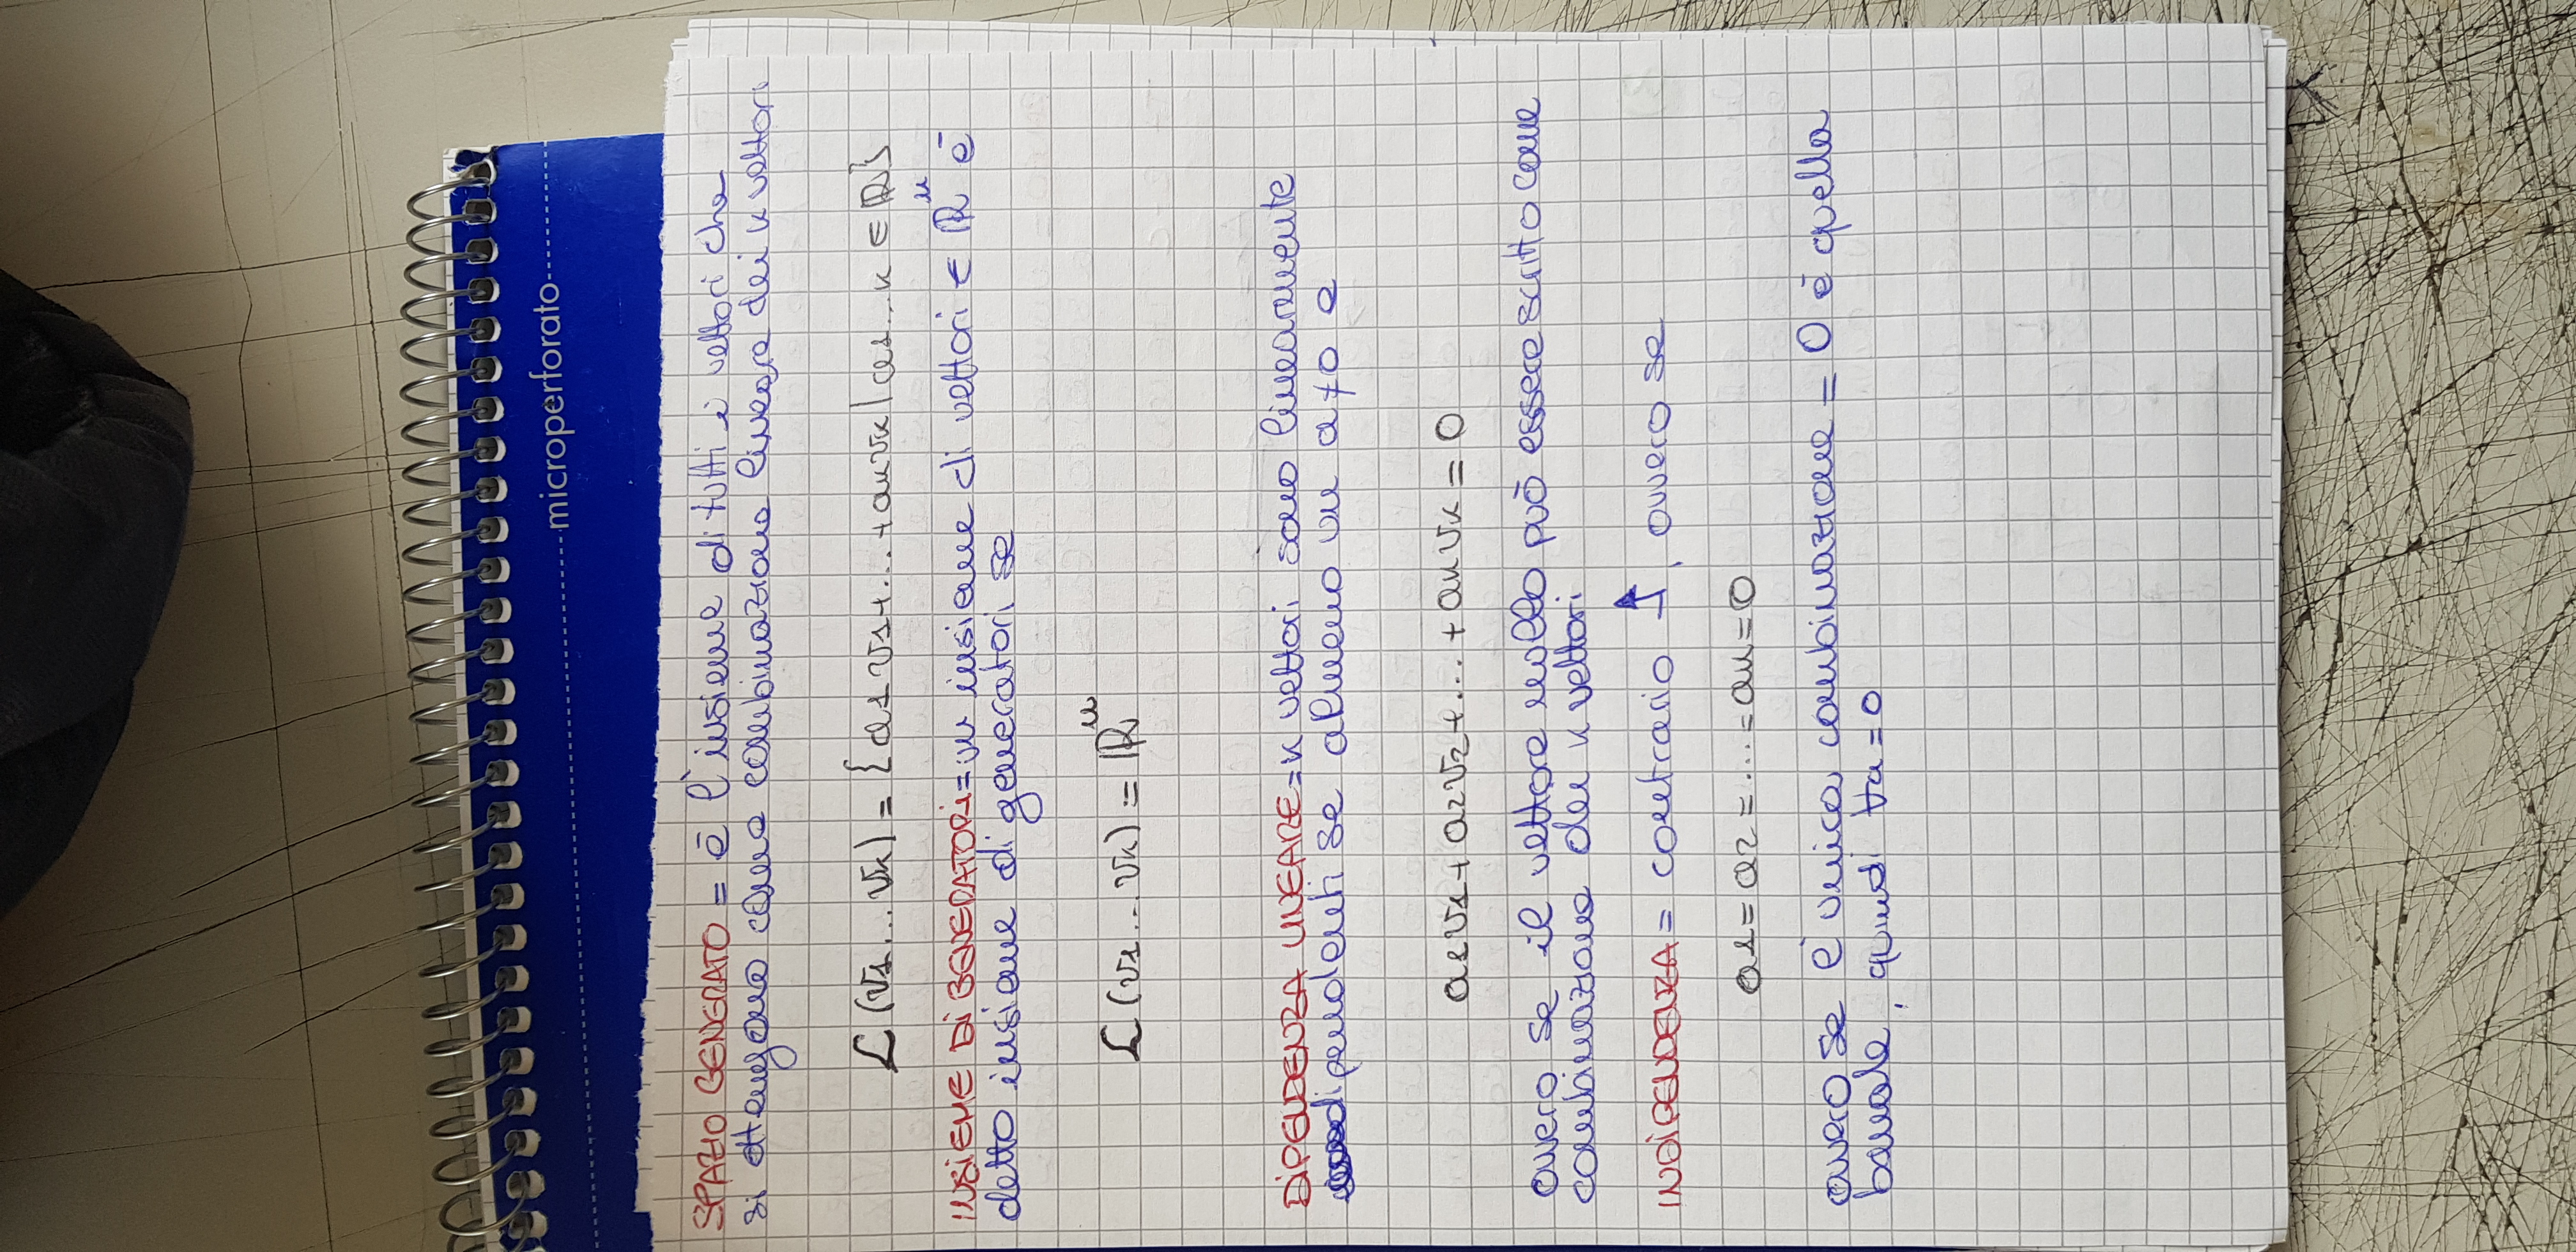 microperforato
SPAZIO GENERATO = è l'insieme di tutti i vettori che
si ottengono come combinazione lineare dei k vettori
L (v1 ... vk) = {a1 v1 + ... + ak vk | a1 ... k ∈ ℝ}
INSIEME DI GENERATORI = un insieme di vettori ∈ ℝⁿ è
detto insieme di generatori se
L (v1 ... vk) = ℝⁿ
DIPENDENZA LINEARE = k vettori sono linearmente
dipendenti se almeno un a ≠ 0 e
a1v1 + a2v2 + ... + ak vk = 0
ovvero se il vettore nullo può essere scritto come
combinazione dei k vettori
INDIPENDENZA = contrario ↑, ovvero se
a1 = a2 = ... = ak = 0
ovvero se l'unica combinazione = 0 è quella
banale, quindi ∀a = 0